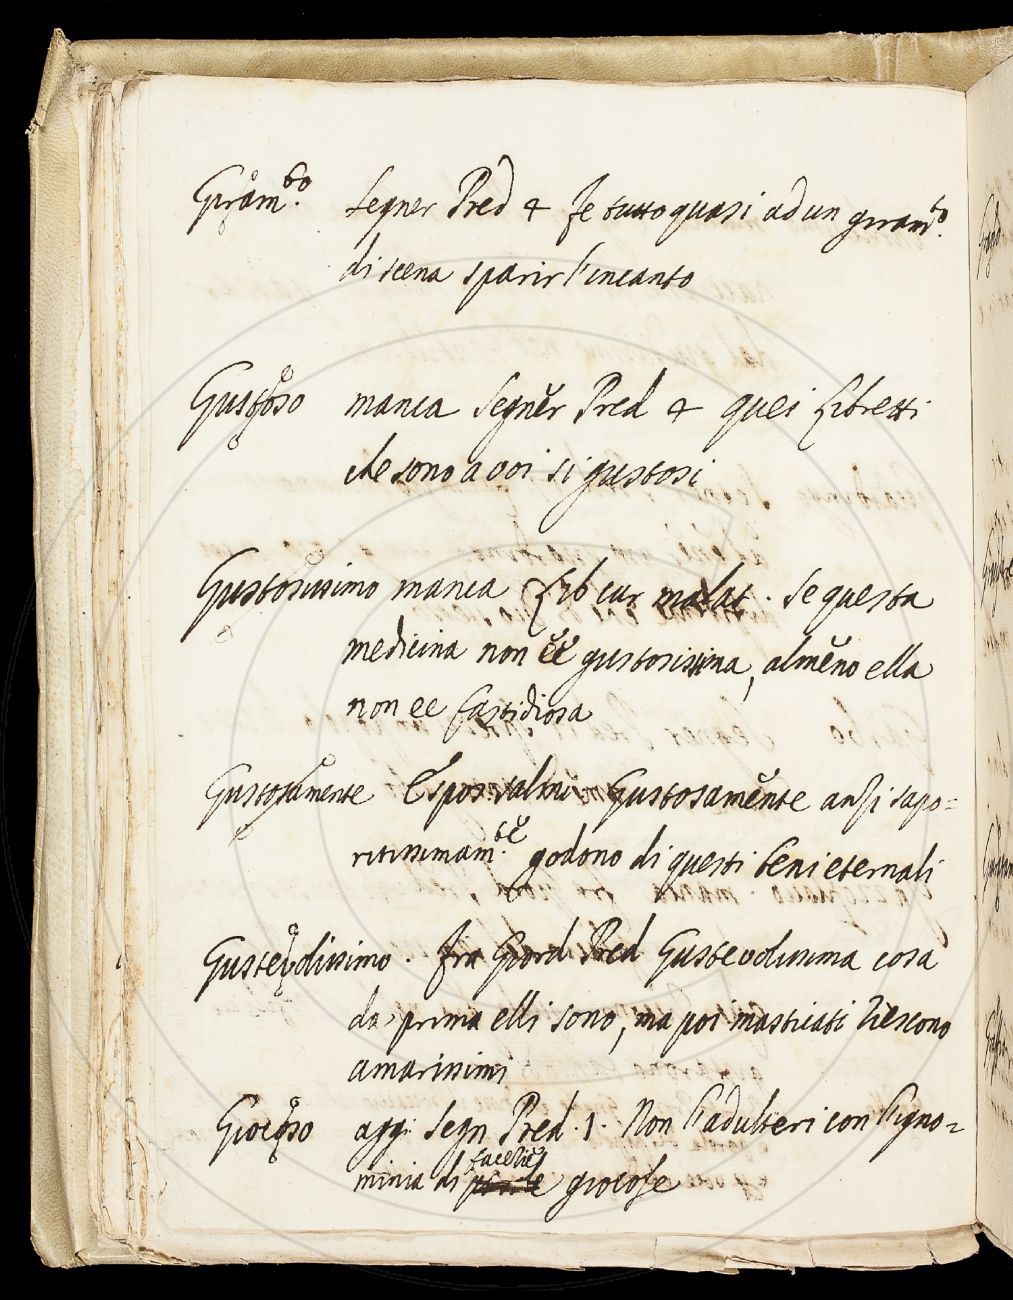 Giram.to Segner Pred 4 fe tutto quasi ad un giram.to
di scena sparir l'incanto
Gustoso manca Segner Pred 4 quei Libretti
che sono a voi si gustosi
Gustosissimo manca Lib cur malat. Se questa
medicina non è gustosissima, almeno ella
non ee fastidiosa
Gustosamente Espos Gustosamente anzi sapo=
ritissimam.te godono di questi beni eternali
Gustevolissimo. fra Giord Pred Gustevolissima cosa
da prima elli sono, ma poi masticati riescono
amarissimi
Giocoso agg. Segn Pred. 1. Non l'adulteri con l'igno=
minia di facelie giocose